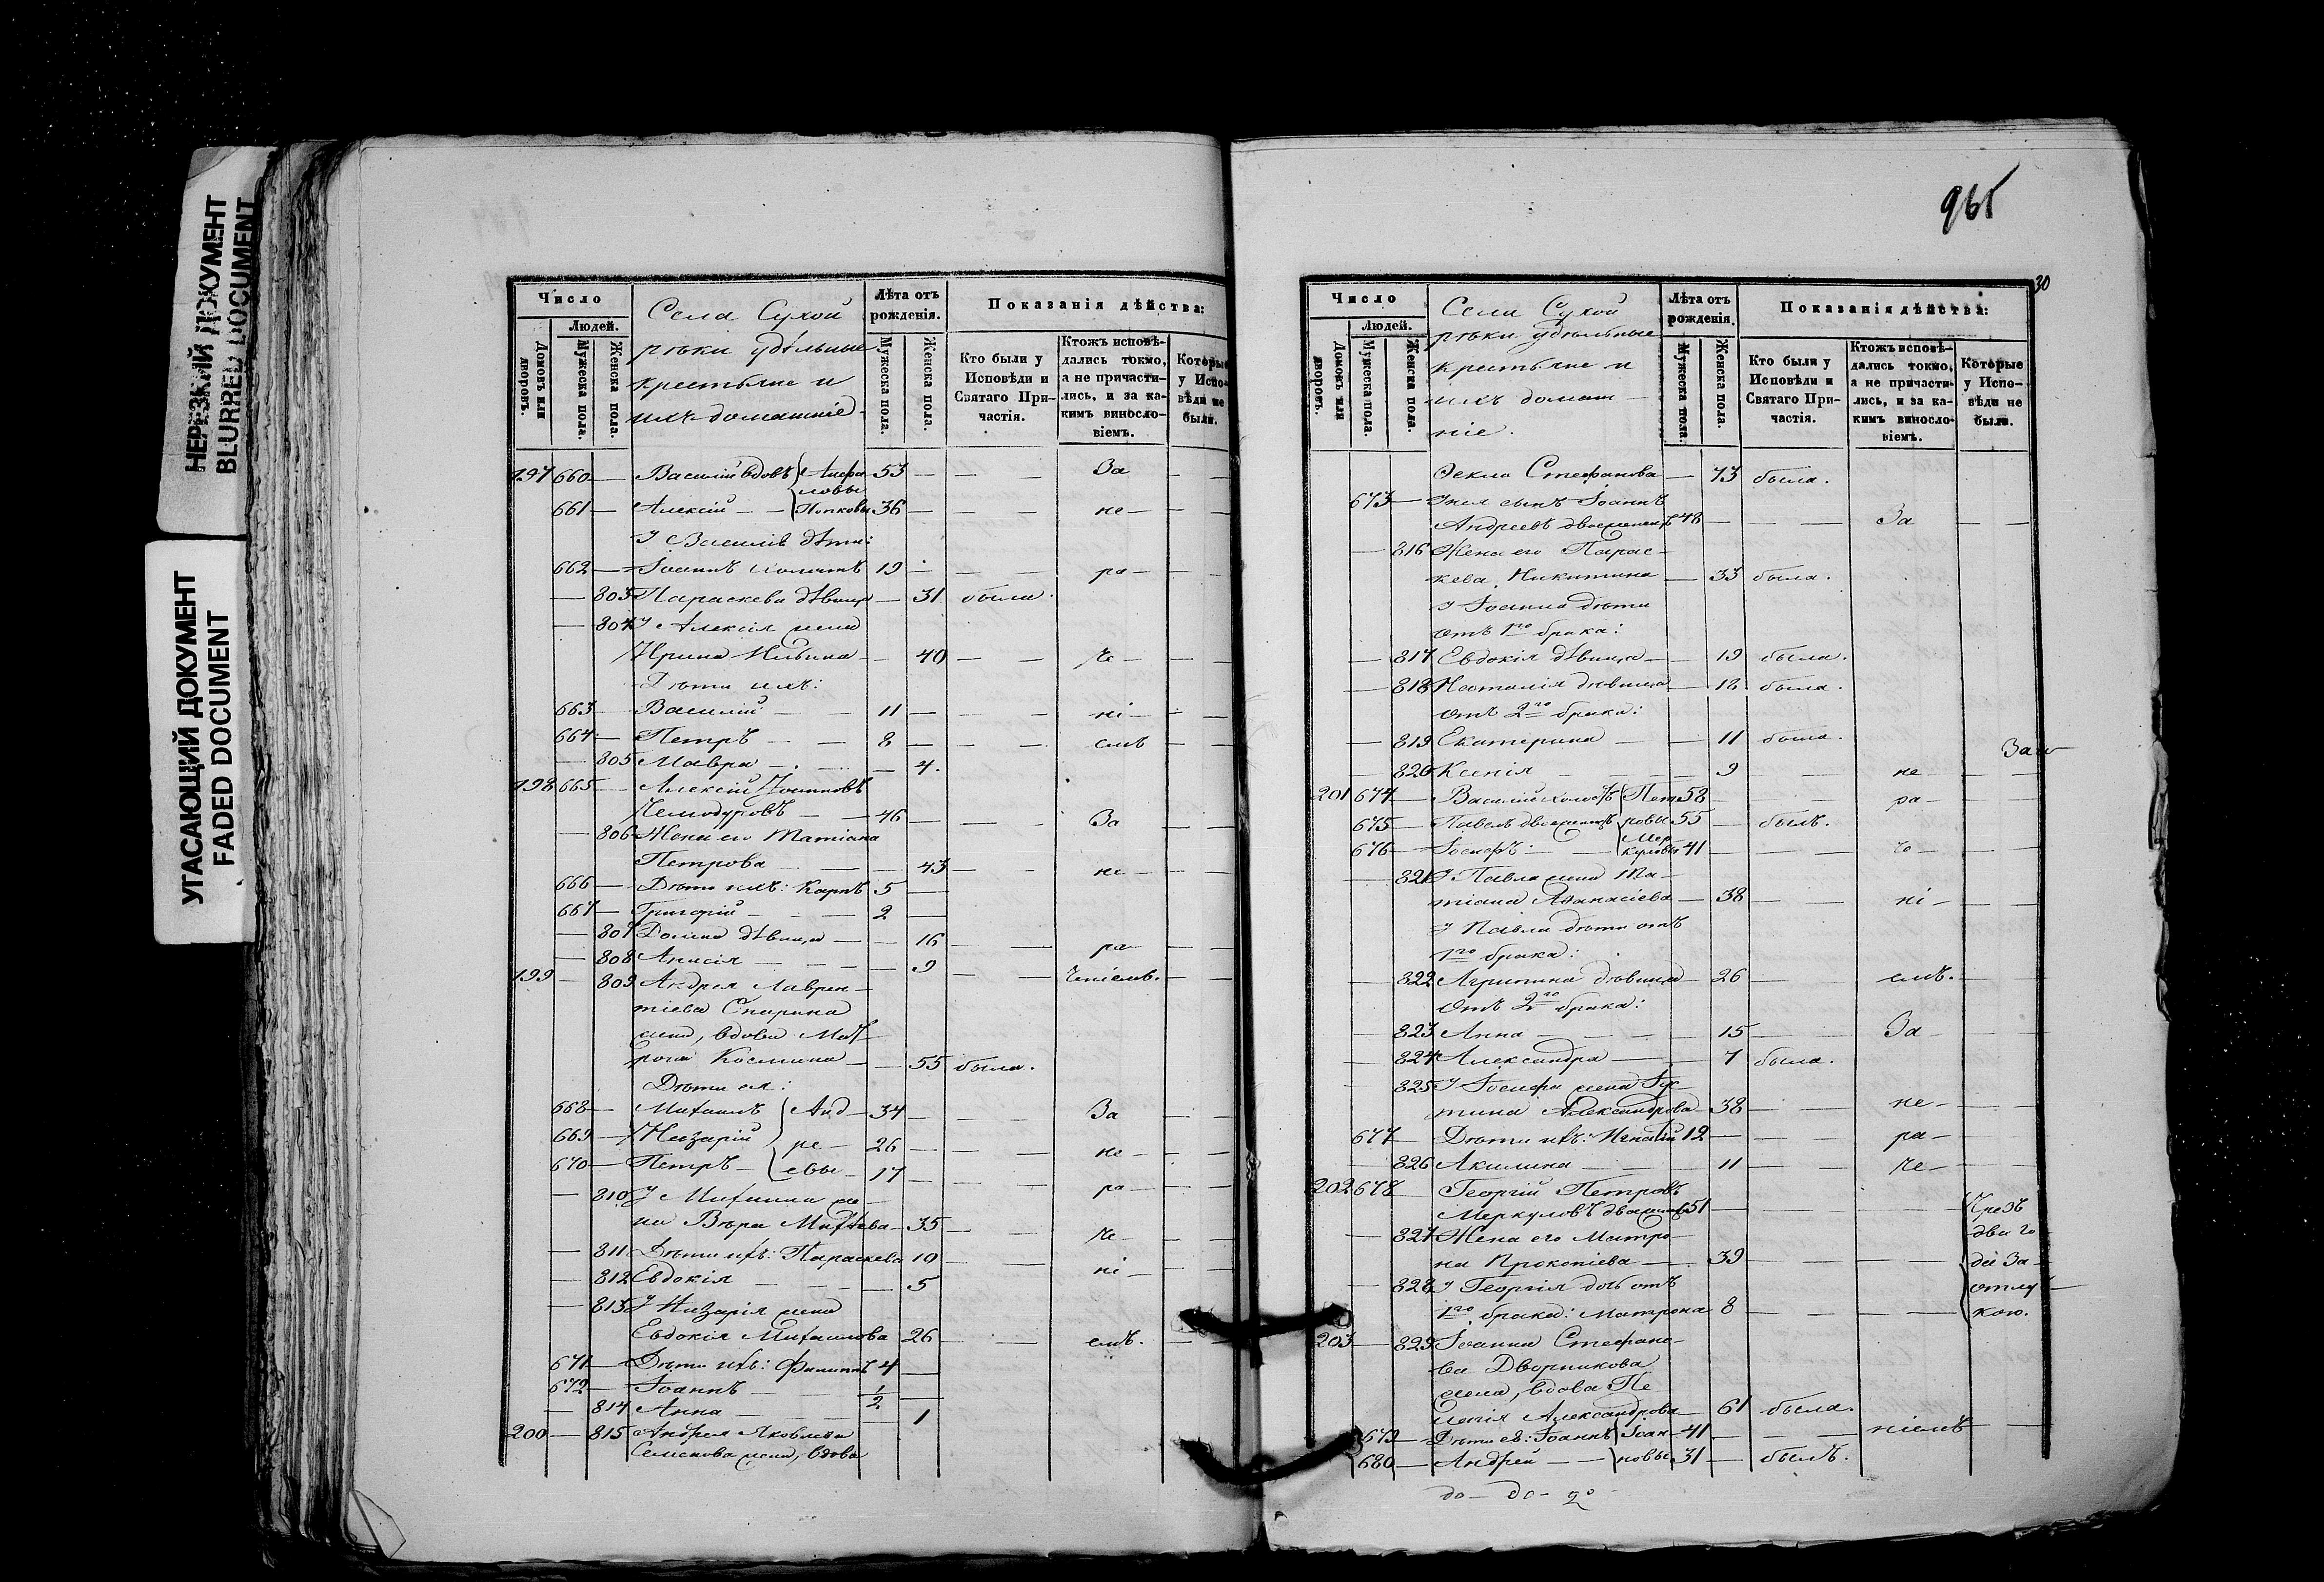 НЕРЕЗКИЙ ДОКУМЕНТ
BLURRED DOCUMENT
УГАСАЮЩИЙ ДОКУМЕНТ
FADED DOCUMENT
Число
Людей.
Домовъ или дворовъ.
Мужеска пола.
Женска пола.
Села Сухой
рѣки удѣльные
крестьяне и
ихъ домашніе
Лѣта отъ рожденія.
Мужеска пола.
Женска пола.
Показанія дѣйства:
Кто были у Исповѣди и Святаго Причастія.
Ктожъ исповѣ-
дались токмо,
а не причасти-
лись, и за ка-
кимъ винosло-
віемъ.
Которые
у Испо-
вѣди не
были.
197 660 — Василій вдовъ 53 — — — За —
661 — Алексій — 36 — — — не —
У Василія дѣти:
662 — Іоаннъ холостъ 19 — — — ра —
— 803 Параскева дѣвица — 31 была.
— 804 У Алексія жена
Ирина — 40 — — че —
Дѣти ихъ:
663 — Василій — 11 — — — ні —
664 — Петръ — — 8 — — — емъ
— 805 Мавра — — 4.
198 665 — Алексій Іоанновъ
Чемодуровъ — — 46 — — — За —
— 806 Жена его Татіана
Петрова — 43 — — не —
666 — Дѣти ихъ: Карпъ 5 —
667 — Григорій — — 2 —
— 807 Домна дѣвица — — 16 — — ра —
— 808 Анисія — — — 9
199 — 809 Андрея Лаврен-
тіева
жена, вдова Мат-
рона Космина — 55 была.
Дѣти ея:
668 — Михаилъ Анд- 34 — — — За —
669 — Назарій ре- 26 — — — не —
670 — Петръ — евы — 17 — — — ра —
— 810 У Михаила же-
на Вѣра — 35 — — че —
— 811 Дѣти ихъ: Параскева 10 — — ні —
— 812 Евдокія — — — 5
— 813 У Назарія жена
Евдокія Михаилова 26 — — емъ.
671 — Дѣти ихъ: Филиппъ 4 —
672 — Іоаннъ — 1/2 —
— 814 Анна — — — 1
200 — 815 Андрея Яковлева
жена, вдова
965
30
Число
Людей.
Домовъ или дворовъ.
Мужеска пола.
Женска пола.
Села Сухой
рѣки удѣльные
крестьяне и
ихъ домаш-
ніе.
Лѣта отъ рожденія.
Мужеска пола.
Женска пола.
Показанія дѣйства:
Кто были у Исповѣди и Святаго Причастія.
Ктожъ исповѣ-
дались токмо,
а не причасти-
лись, и за ка-
кимъ винosло-
віемъ.
Которые
у Испо-
вѣди не
были.
Ѳекла Стефанова — 73 была.
673 — У нея сынъ Іоаннъ
Андреевъ двоеженецъ 48 — — — За — —
— 816 Жена его Парас-
кева Никитина — 33 была.
У Іоанна дѣти
отъ 1го брака:
— 817 Евдокія дѣвица — 19 была.
— 818 Наталія дѣвица — 18 была.
отъ 2го брака:
— 819 Екатерина — — 11 была.
— 820 Ксенія — 9 — — не — —
201 674 — Василій холостъ Пет- 58 — — — ра — —
675 — Павелъ двоеженецъ ровы 55 — былъ.
676 — Іосифъ: — Мер-куловы 41 — — — че —
— 821 У Павла жена Та-
тіана Аѳанасіева — 38 — — ні —
У Павла дѣти отъ
1го брака:
— 822 Агрипина дѣвица — 26 — — емъ. —
отъ 2го брака:
— 823 Анна — — — 15 — — За —
— 824 Александра — — 7 была.
— 825 У Іосифа жена Іус-
тина Александрова — 38 — — не —
677 — Дѣти ихъ: Игнатій 12 — — — ра —
— 826 Акилина — — 11 — — че —
202 678 — Георгій Петровъ
Меркуловъ двоеженецъ 51 — — — — Чрезъ
— 827 Жена его Матро- два го-
на Прокопіева — 39 — — — да За
— 828 У Георгія дочь отъ отлуч-
1го брака: Матрона 8 — — — кою.
203 — 829 Іоанна Стефано-
ва Дворникова
жена, вдова Пе-
лагія Александрова — 61 была.
679 — Дѣти ея: Іоаннъ Іоан- 41 — — — ніемъ —
680 — Андрей — — новы 31 — былъ.